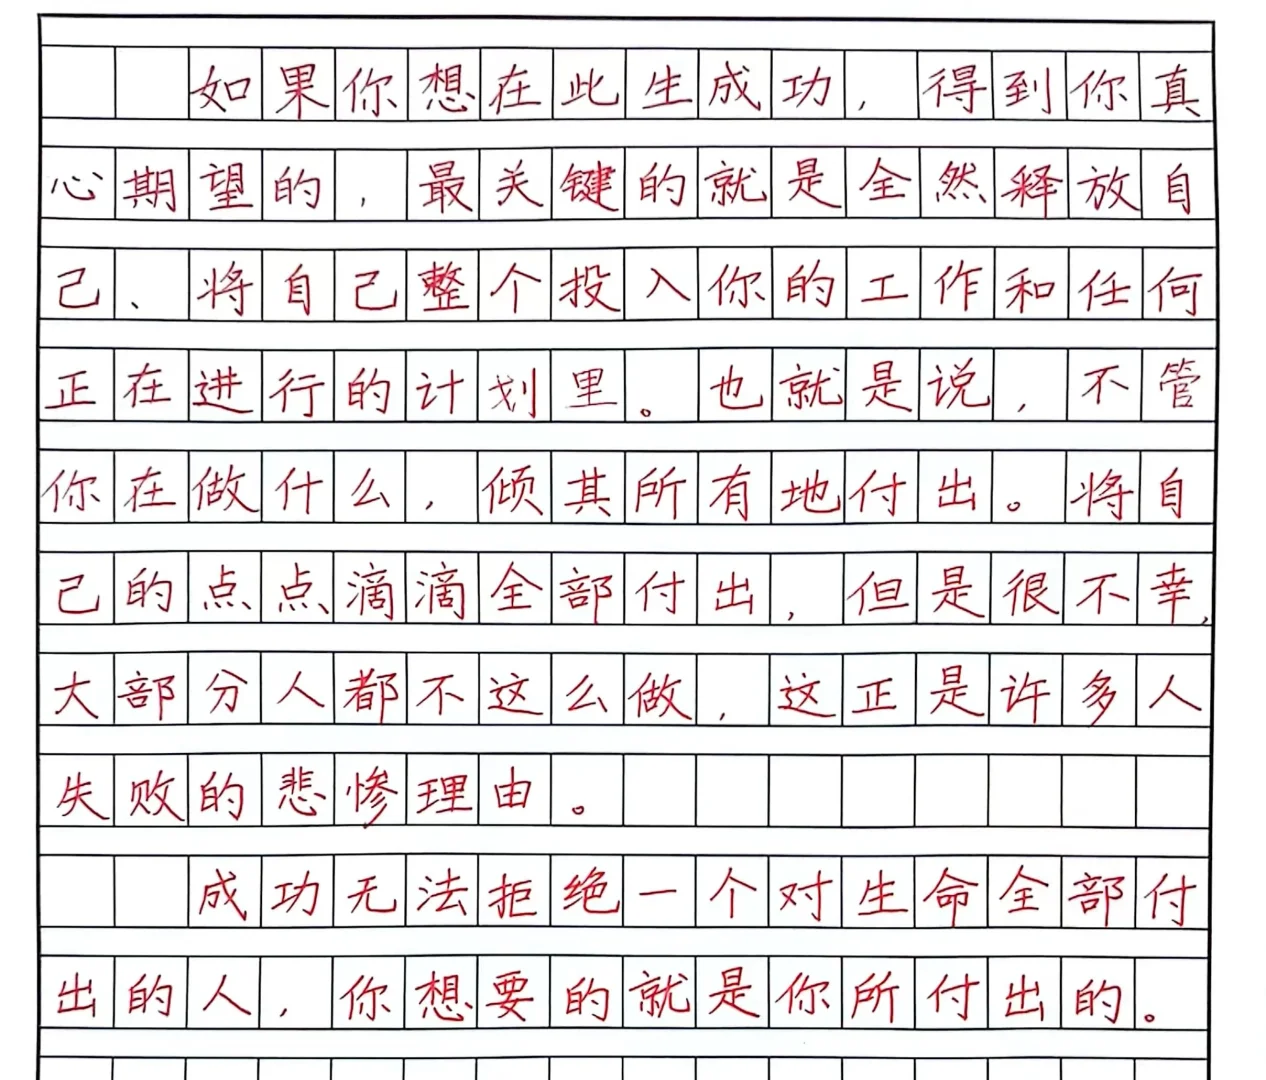 如果你想在此生成功，得到你真
心期望的，最关键的就是全然释放自
己、将自己整个投入你的工作和任何
正在进行的计划里。也就是说，不管
你在做什么，倾其所有地付出。将自
己的点点滴滴全部付出，但是很不幸，
大部分人都不这么做，这正是许多人
失败的悲惨理由。
成功无法拒绝一个对生命全部付
出的人，你想要的就是你所付出的。